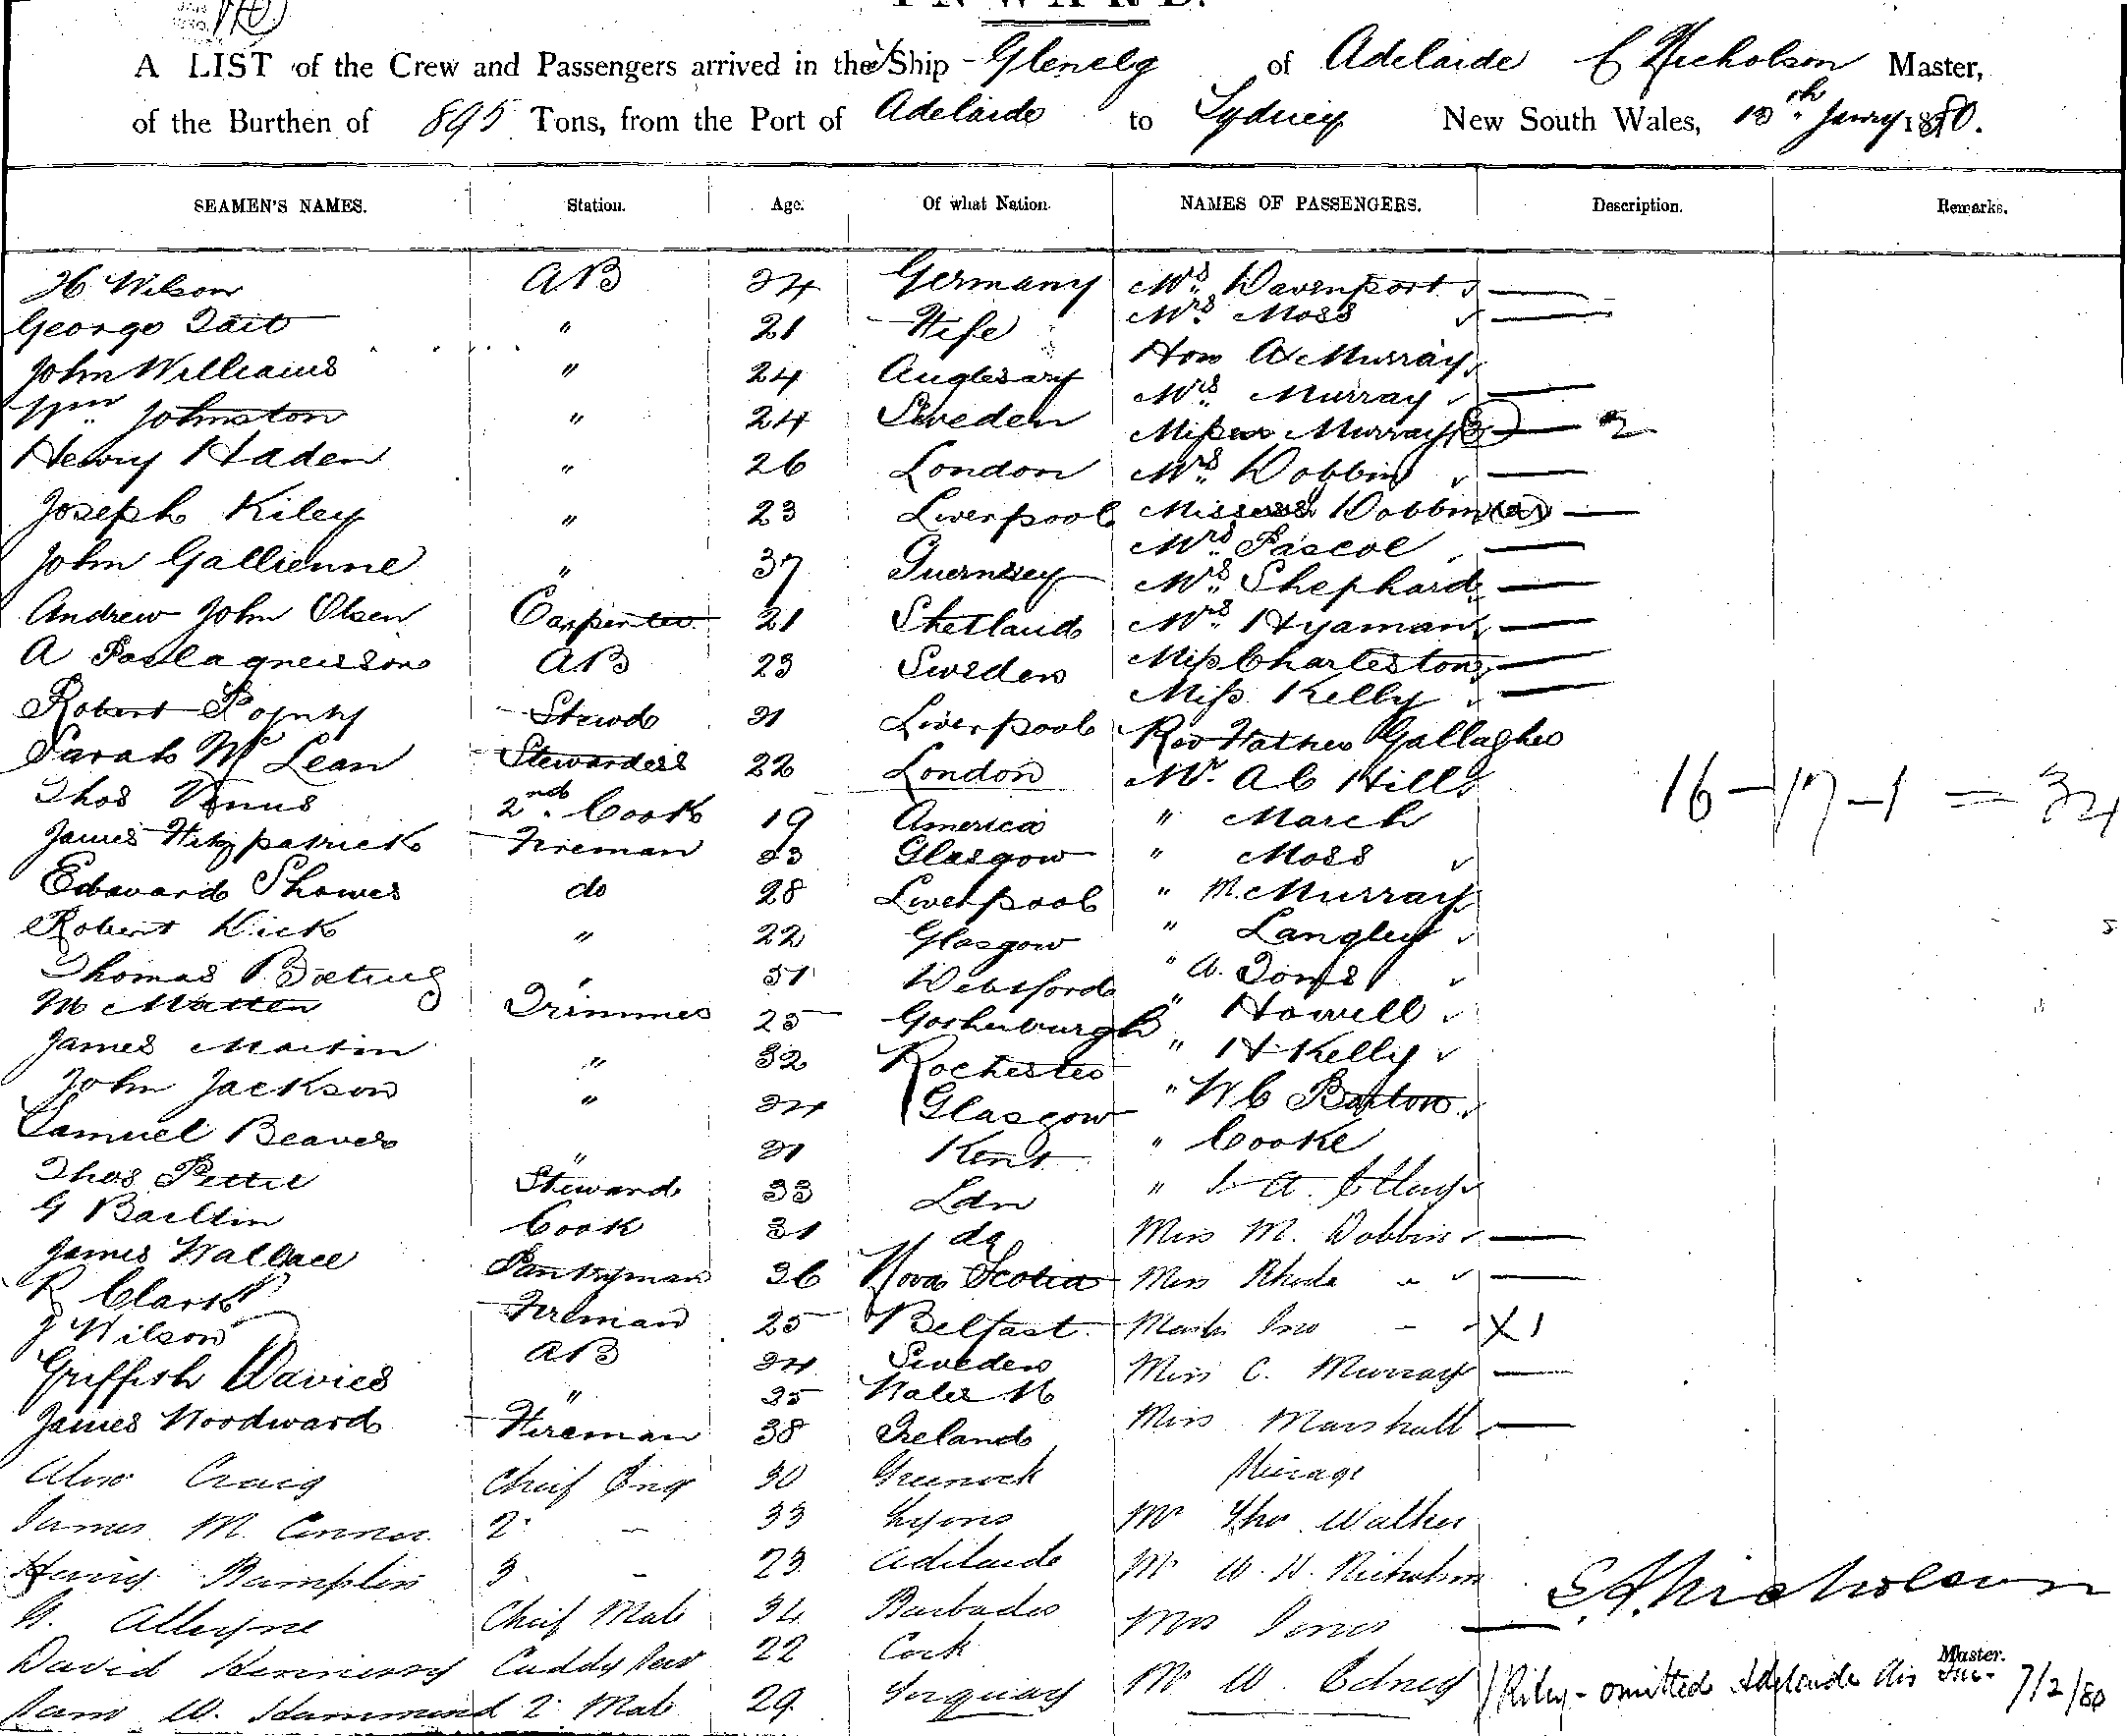 INWARD.
A LIST of the Crew and Passengers arrived in the Ship Glenelg of Adelaide Nicholson Master,
of the Burthen of 895 Tons, from the Port of Adelaide to Sydney New South Wales, 18th Janry 1880.
SEAMEN'S NAMES. Station. Age. Of what Nation. NAMES OF PASSENGERS. Description. Remarks.
H Wilson AB 24 Germany Mrs Davenport
George Tait " 21 Fife Mrs Moss
John Williams " 24 Anglesary Hon A Murray
Wm Johnston " 24 Sweden Mrs Murray
Henry Haden " 26 London Misses Murray 2
Joseph Kiley " 23 Liverpool Mrs Dobbin
John Gallienne " 37 Guernsey Misses Dobbin
Andrew John Olsen Carpenter 21 Shetland Mrs Pascoe
A AB 23 Sweden Mrs Shephard
Robert Stewd 21 Liverpool Mrs Hyaman
Sarah McLean Stewardess 22 London Miss Charleston
Thos Venus 2nd Cook 19 America Miss Kelly
James Fitzpatrick Fireman 23 Glasgow Rev Father Gallagher
Edward Showes do 28 Liverpool Mr A C Hill
Robert Dick " 22 Glasgow " March
Thomas " 31 " Moss
Matten Trimmer 25 " M. Murray
James Martin " 32 Rochester " Langley
John Jackson " 24 Glasgow " A.
Samuel Beaver " 21 Kent " Howell
Thos Pettit Steward 33 Ldn " H Kelly
G Cook 31 do " W C Barton
James Wallace Pantryman 26 Nova Scotia " Cooke
R Clark Fireman 25 Belfast "
J Wilson AB 24 Sweden Miss M. Dobbin
Griffith Davies " 25 Wales N Miss Rhoda "
James Woodward Fireman 38 Ireland X 1
Craig Chief Eng 30 Greenock Miss C. Murray
James M. Connor 2 - 33 Lyons Miss Marshall
Henry Bamplin 3 - 23 Adelaide Steerage
Alleyne Chief Mate 34 Barbados Mr Thos Walker
David Hennessy Cuddy 22 Cork Mr W. H. Nicholson
W. Hammond 2 Mate 29 Torquay Mrs Jones
Mr W. Edney
16 - 17 - 1 = 34
Nicholson
Master.
1 Riley - omitted Adelaide 7/2/80